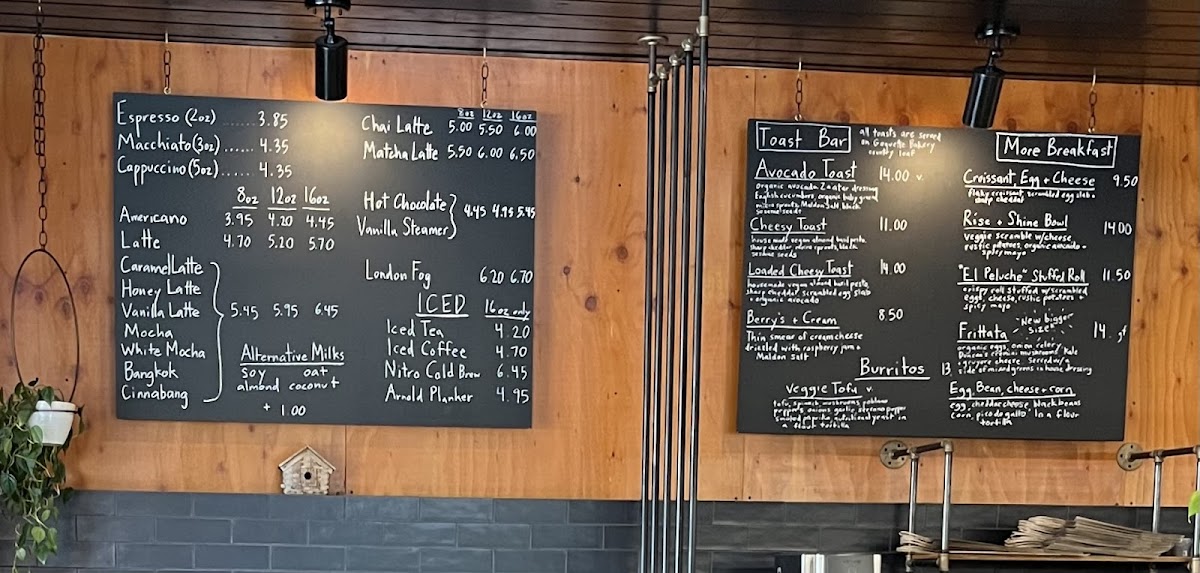 Espresso (2oz) ....... 3.85
Macchiato (3oz) ...... 4.35
Cappuccino (5oz) ... 4.35
8oz 12oz 16oz
Americano 3.95 4.20 4.45
Latte 4.70 5.20 5.70
Caramel Latte
Honey Latte
Vanilla Latte 5.45 5.95 6.45
Mocha
White Mocha
Bangkok
Cinnabang
Alternative Milks
Soy oat
almond coconut
+ 1.00
8oz 12oz 16oz
Chai Latte 5.00 5.50 6.00
Matcha Latte 5.50 6.00 6.50
Hot Chocolate
4.45 4.95 5.45
Vanilla Steamer
London Fog 6.20 6.70
ICED 16oz only
Iced Tea 4.20
Iced Coffee 4.70
Nitro Cold Brew 6.45
Arnold Planker 4.95
Toast Bar
all toasts are served
on Coquette Bakery
country loaf
Avocado Toast 14.00 v.
organic avocado, Zaatar dressing
English cucumbers, organic baby greens
micro sprouts, Maldon salt, black
sesame seeds
Cheesy Toast 11.00
house made vegan almond basil pesto,
sharp cheddar, micro sprouts, black
sesame seeds
Loaded Cheesy Toast 14.00
housemade vegan almond basil pesto
sharp cheddar, scrambled egg slab
+ organic avocado
Berry's + Cream 8.50
Thin smear of creamcheese
drizzled with raspberry jam &
Maldon Salt
More Breakfast
Croissant, Egg + Cheese 9.50
flaky croissant, scrambled egg slab +
sharp cheddar
Rise + Shine Bowl 14.00
veggie scramble w/cheese
rustic potatoes, organic avocado +
spicy mayo
"El Peluche" Stuffed Roll 11.50
crispy roll stuffed w/scrambled
egg, cheese, rustic potatoes +
spicy mayo
Frittata New bigger size! 14. gf
organic eggs, onion, celery
cremini mushrooms, Kale
gruyere cheese. Served w/a
side of mixed greens in house dressing
Burritos 13.
Veggie Tofu v.
tofu, spinach, mushrooms, poblano
peppers, onions, garlic, serrano pepper
smoked paprika, nutritional yeast in
a flour tortilla
Egg, Bean, cheese + corn
egg, cheddar cheese, black beans
corn, pico de gallo in a flour
tortilla